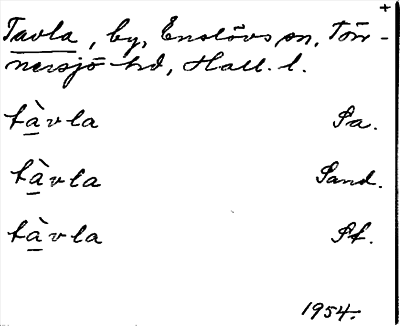 +
Tavla, by, Enslövs sn, Tön-
nersjö hd, Hall. l.
tàvla Pa.
tàvla Sand.
tàvla Pf.
1954.